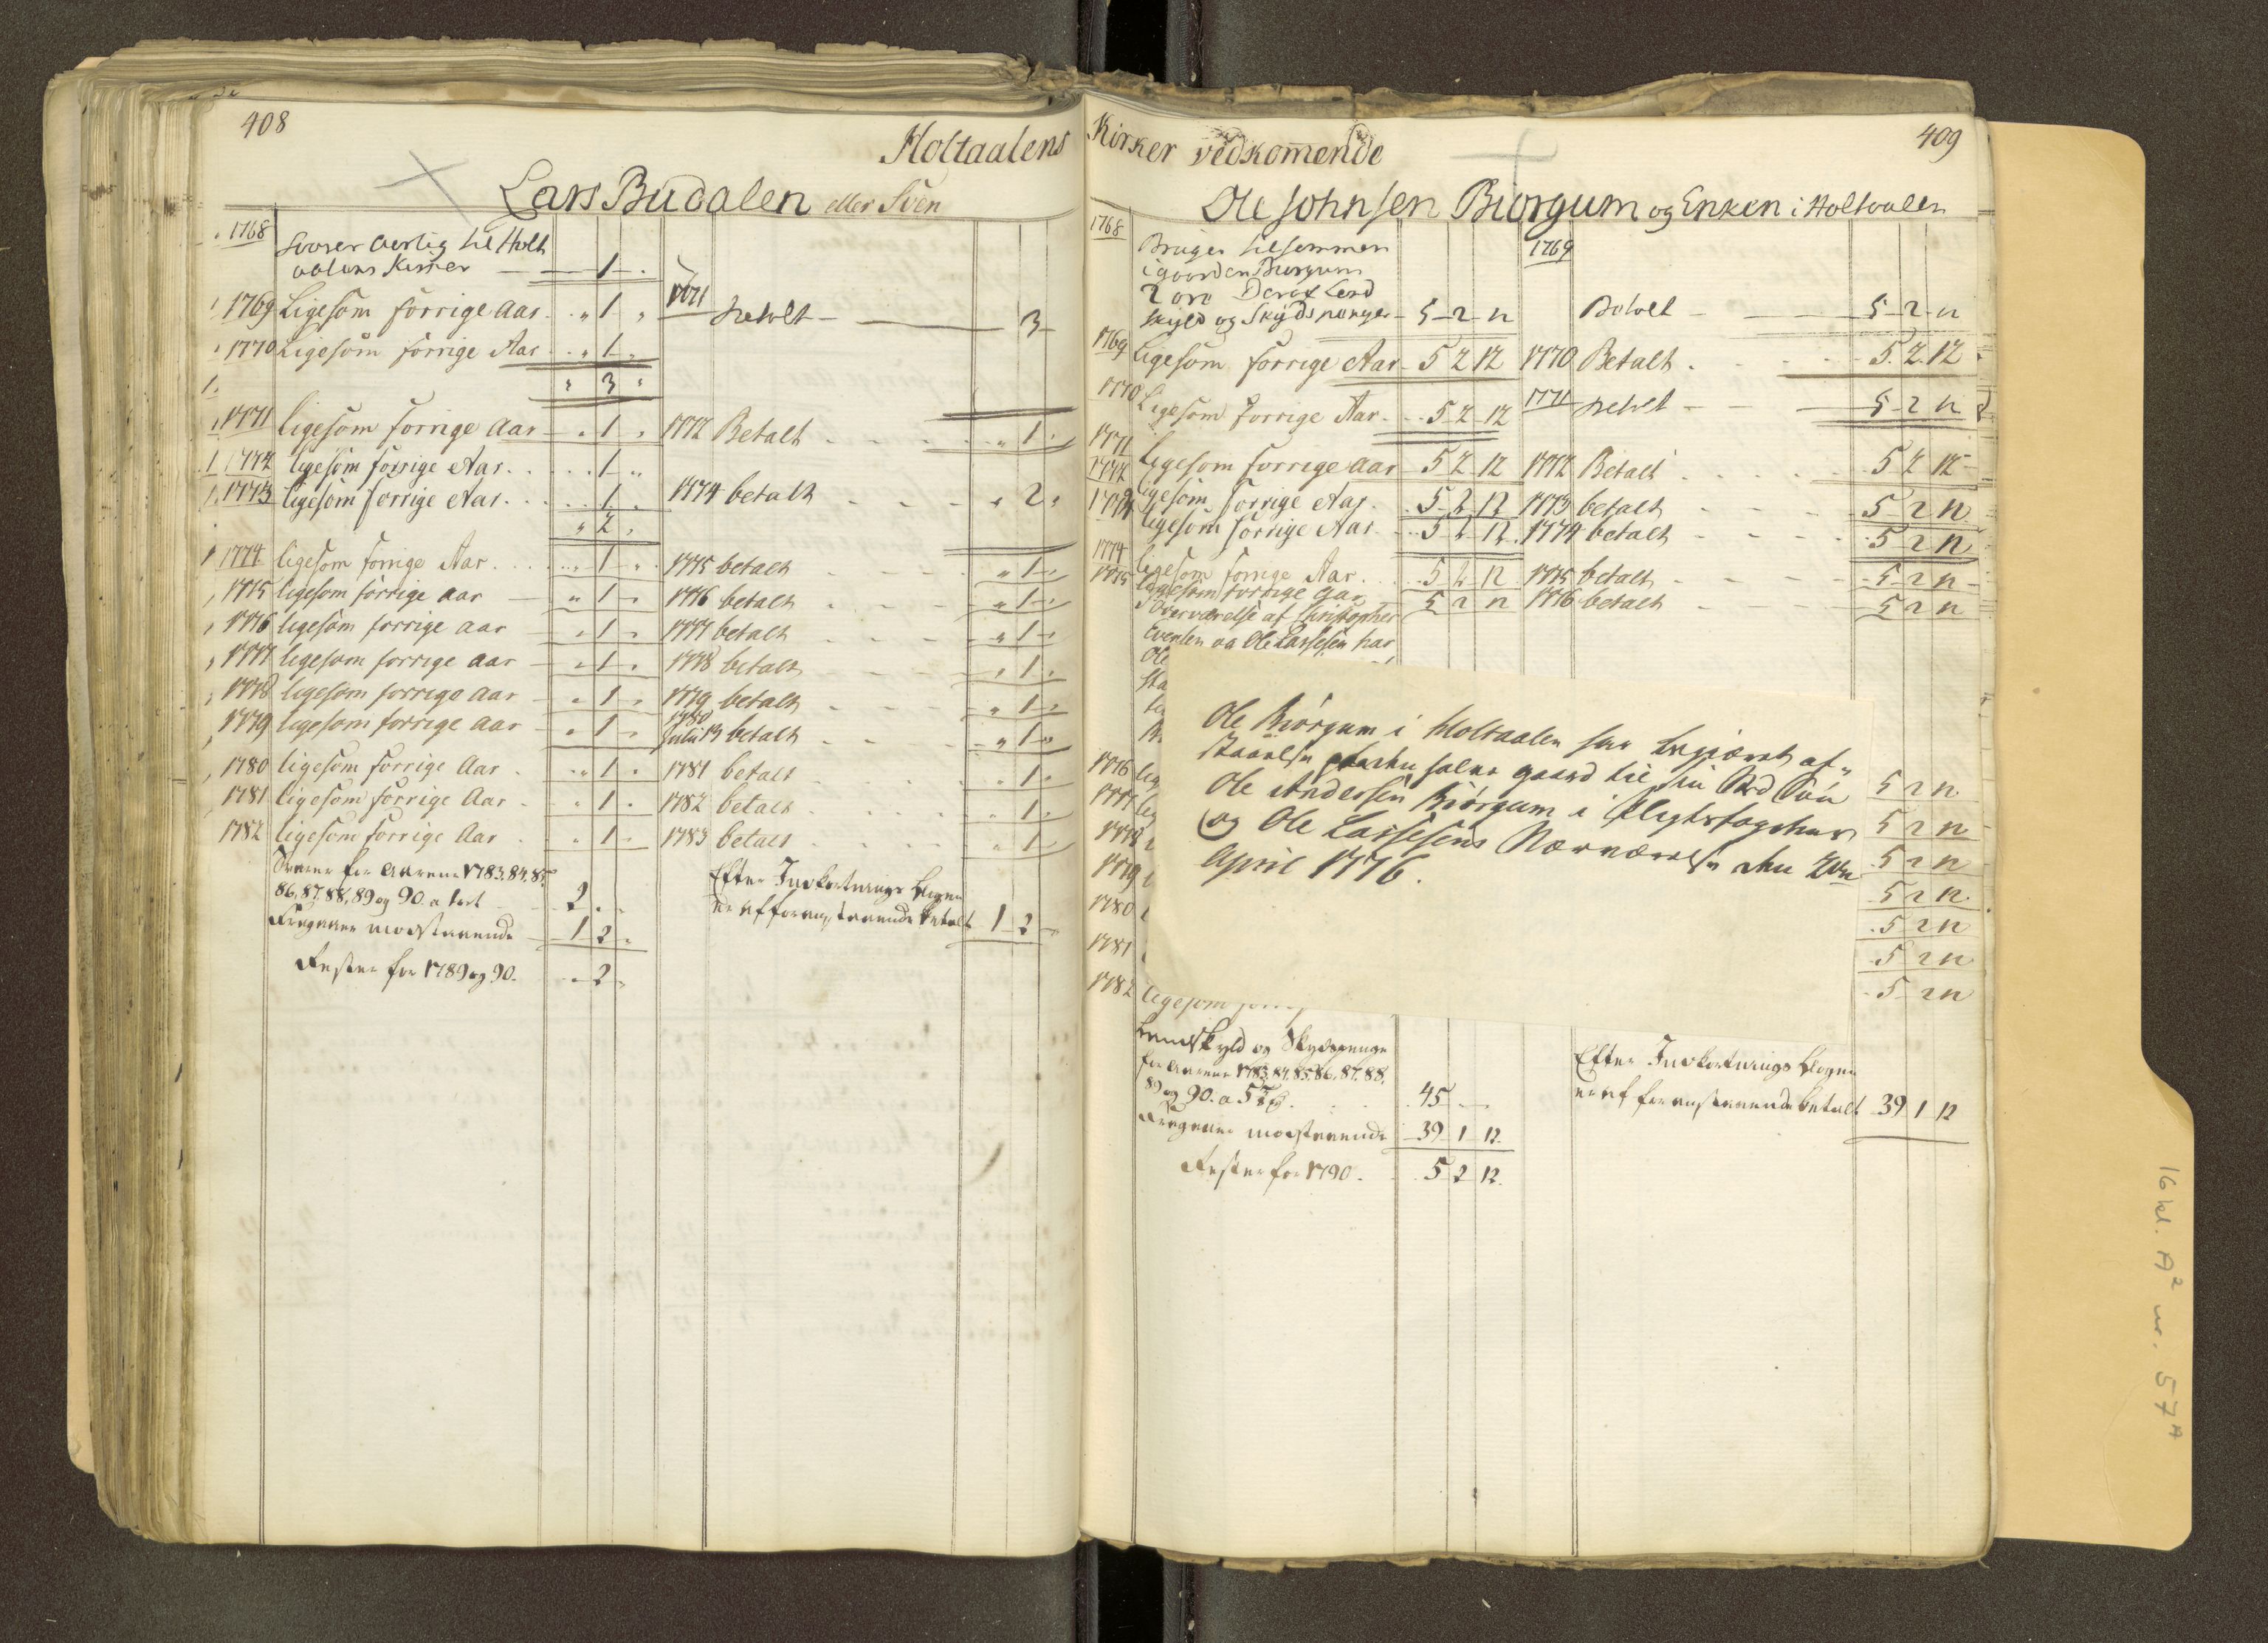 408
Holtaalens
Lars Budalen eller Sven
1768 Svarer aarlig til Holt
aalens Kirker 1
1769 Ligesom forrige Aar 1
1771 betalt 3
1770 Ligesom forrige Aar 1
3
1771 ligesom forrige Aar 1 1772 Betalt 1
1772 ligesom forrige Aar 1
1773 ligesom forrige Aar 1 1774 betalt 2
2
1774 ligesom forrige Aar 1 1775 betalt 1
1775 ligesom forrige aar 1 1776 betalt 1
1776 ligesom forrige aar 1 1777 betalt 1
1777 ligesom forrige aar 1 1778 betalt 1
1778 ligesom forrige aar 1 1779 betalt 1
1779 ligesom forrige aar 1 1780 Julii 13 betalt 1
1780 ligesom forrige Aar 1 1781 betalt 1
1781 ligesom forrige Aar 1 1782 betalt 1
1782 ligesom forrige Aar 1 1783 betalt 1
Svarer for Aarene 1783. 84. 85.
86. 87. 88. 89 og 90. a 1 ort 2
Efter Indkortnings Bogen
er af foranstaaende betalt 1 2
Fragaaer modstaaende 1 2
Rester for 1789 og 90. 2
Kirker vedkommende
409
Ole Johnsen Biørgum og Enken i Holtaalen
1768 Bruger tilsammen
i gaarden Biørgum
2 øre Deraf Land
skyld og Skydspenger 5 2 12
1769 Betalt 5 2 12
1769 Ligesom forrige Aar 5 2 12 1770 Betalt 5 2 12
1770 Ligesom forrige Aar 5 2 12 1771 betalt 5 2 12
1771 Ligesom forrige Aar 5 2 12 1772 Betalt 5 2 12
1772 ligesom forrige Aar 5 2 12 1773 betalt 5 2 12
1773 ligesom forrige Aar 5 2 12 1774 betalt 5 2 12
1774 ligesom forrige Aar 5 2 12 1775 betalt 5 2 12
1775 ligesom forrige Aar 5 2 12 1776 betalt 5 2 12
I Overværelse af Christopher
Evensen og Ole Lassesen har
Ole
Ole Biørgum i Holtaalen har begiæret af-
staaelse paa den halve gaard til sin Sød Søn
Ole Andersen Biørgum i
og Ole Lassesens Nærværelse den 2den
April 1776.
1776 lig 5 2 12
1777 lig 5 2 12
1778 5 2 12
1779 5 2 12
1780 5 2 12
1781 5 2 12
1782 ligesom forrig 5 2 12
Landskyld og Skydspenge
for Aarene 1783. 84. 85. 86. 87. 88.
89 og 90. 45
Efter Indkortnings Bogen
er af foranstaaende betalt 39 1 12
Fragaaer modstaaende 39 1 12
Rester for 1790. 5 2 12
16 kl. A² nr. 57ᴬ